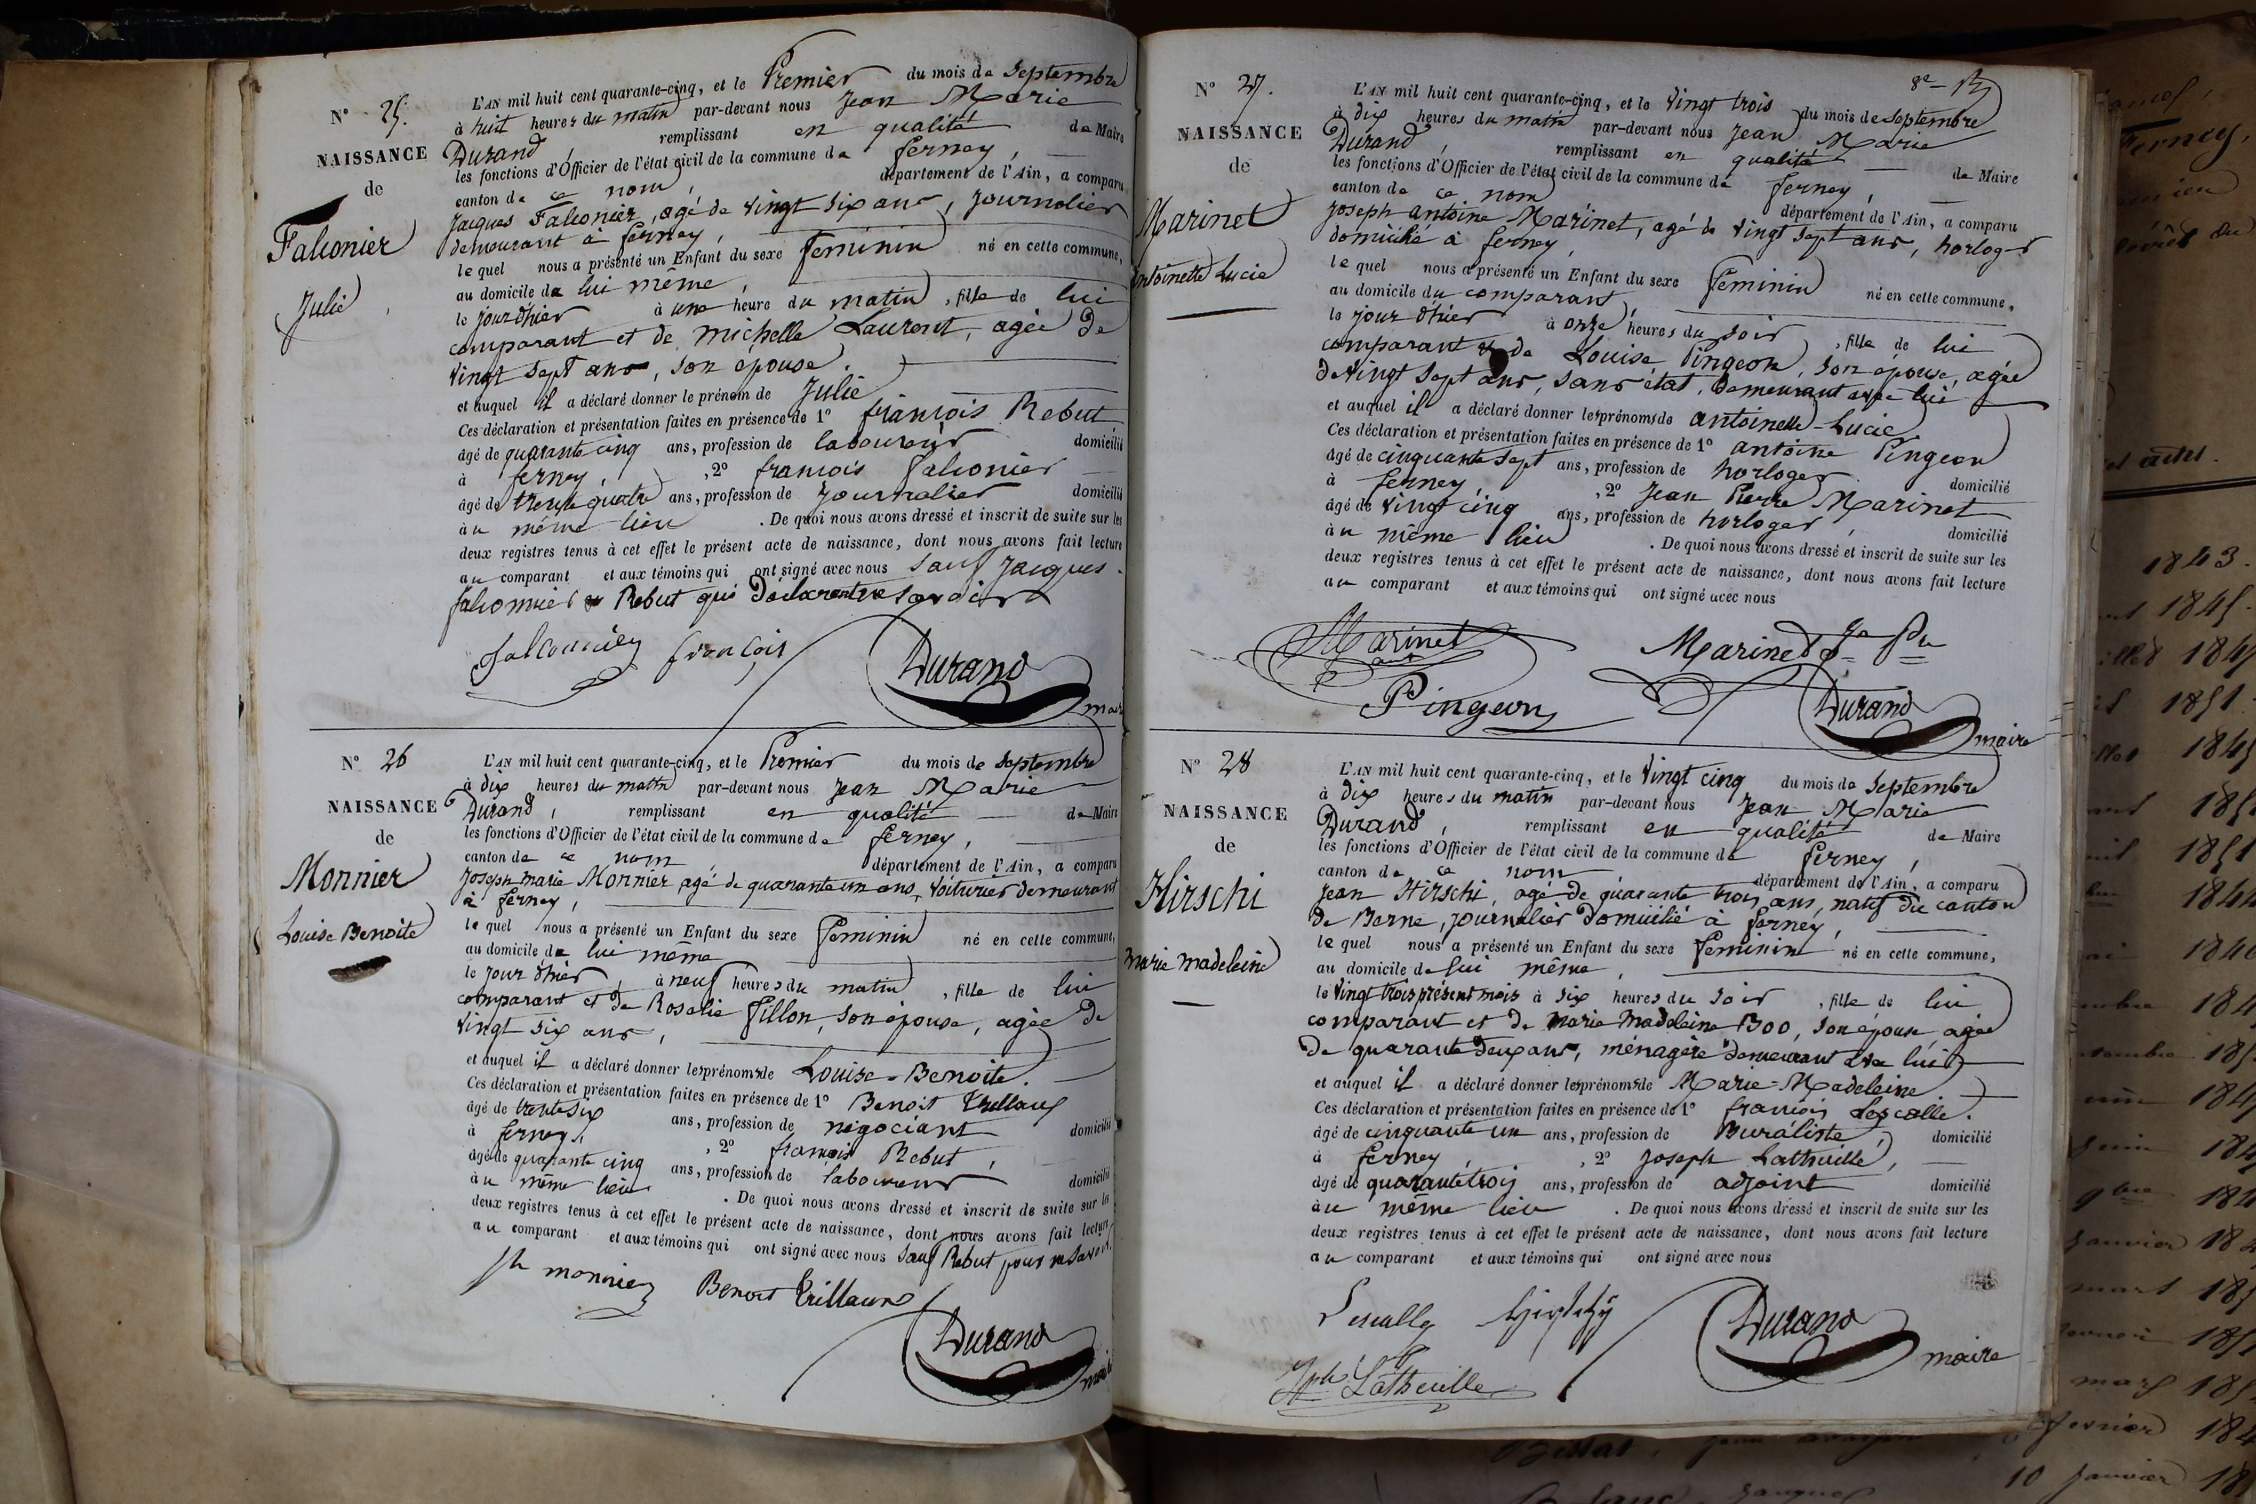 Nº 25.
NAISSANCE
de
Falconier
Julie
L'AN mil huit cent quarante-cinq, et le Premier du mois de Septembre
à huit heures du matin par-devant nous Jean Marie
Durand, remplissant en qualité de Maire
les fonctions d'Officier de l'état civil de la commune de ferney,
canton de ce nom, département de l'Ain, a comparu
Jacques Falconier, agé de vingt six ans, journalier
demeurant à ferney,
lequel nous a présenté un Enfant du sexe féminin né en cette commune,
au domicile de lui même,
le jour d'hier à une heure du matin, fille de lui
comparant et de michelle Laurent, agée de
vingt sept ans, son épouse.
et auquel il a déclaré donner le prénom de Julie
Ces déclaration et présentation faites en présence de 1º françois Rebut
âgé de quarante cinq ans, profession de laboureur domicilié
à ferney, , 2º francois falconier
âgé de trente quatre ans, profession de journalier domicilié
au même lieu . De quoi nous avons dressé et inscrit de suite sur les
deux registres tenus à cet effet le présent acte de naissance, dont nous avons fait lecture
au comparant et aux témoins qui ont signé avec nous sauf Jacques
falconnier et Rebut qui déclarent ne savoir
falconnier françois Durand
maire
Nº 26
NAISSANCE
de
Monnier
Louise Benoite
L'AN mil huit cent quarante-cinq, et le Premier du mois de Septembre
à dix heures du matin par-devant nous Jean Marie
Durand, remplissant en qualité de Maire
les fonctions d'Officier de l'état civil de la commune de ferney,
canton de ce nom département de l'Ain, a comparu
Joseph marie Monnier agé de quarante un ans, voiturier demeurant
à ferney,
lequel nous a présenté un Enfant du sexe féminin né en cette commune,
au domicile de lui même
le jour d'hier, à neuf heures du matin, fille de lui
comparant et de Rosalie fillon, son épouse, agée de
vingt six ans,
et auquel il a déclaré donner les prénoms de Louise-Benoite.
Ces déclaration et présentation faites en présence de 1º Benoit
âgé de trente six ans, profession de négociant domicilié
à ferney, , 2º françois Rebut,
âgé de quarante cinq ans, profession de laboureur domicilié
au même lieu . De quoi nous avons dressé et inscrit de suite sur les
deux registres tenus à cet effet le présent acte de naissance, dont nous avons fait lecture
au comparant et aux témoins qui ont signé avec nous sauf Rebut pour ne savoir.
monnier Benoit Durand
maire
Nº 27.
NAISSANCE
de
Marinet
Antoinette Lucie
L'AN mil huit cent quarante-cinq, et le vingt trois du mois de Septembre
à dix heures du matin par-devant nous Jean Marie
Durand, remplissant en qualité de Maire
les fonctions d'Officier de l'état civil de la commune de ferney,
canton de ce nom département de l'Ain, a comparu
Joseph antoine Marinet, agé de vingt sept ans, horloger
domicilié à ferney,
lequel nous a présenté un Enfant du sexe féminin né en cette commune,
au domicile du comparant,
le jour d'hier à onze heures du soir, fille de lui
comparant et de Louise Pingeon, son épouse, agée
de vingt sept ans, sans état, demeurant avec lui
et auquel il a déclaré donner les prénoms de antoinette-Lucie
Ces déclaration et présentation faites en présence de 1º antoine Pingeon
âgé de cinquante sept ans, profession de horloger domicilié
à ferney, , 2º Jean Pierre Marinet
âgé de vingt cinq ans, profession de horloger, domicilié
au même lieu . De quoi nous avons dressé et inscrit de suite sur les
deux registres tenus à cet effet le présent acte de naissance, dont nous avons fait lecture
au comparant et aux témoins qui ont signé avec nous
Marinet Marinet
Pingeon Durand
maire
Nº 28
NAISSANCE
de
Hirschi
marie madeleine
L'AN mil huit cent quarante-cinq, et le vingt cinq du mois de Septembre
à dix heures du matin par-devant nous Jean Marie
Durand, remplissant en qualité de Maire
les fonctions d'Officier de l'état civil de la commune de ferney,
canton de ce nom département de l'Ain, a comparu
Jean Hirschi, agé de quarante trois ans, natif du canton
de Berne, journalier domicilié à ferney,
lequel nous a présenté un Enfant du sexe féminin né en cette commune,
au domicile de lui même,
le vingt trois présent mois à six heures du soir, fille de lui
comparant et de marie madeleine Boo, son épouse, agée
de quarante deux ans, ménagère demeurant avec lui
et auquel il a déclaré donner les prénoms de Marie-Madeleine
Ces déclaration et présentation faites en présence de 1º francois
âgé de cinquante un ans, profession de Buraliste, domicilié
à ferney, , 2º Joseph Lathuille,
âgé de quarante trois ans, profession de adjoint domicilié
au même lieu . De quoi nous avons dressé et inscrit de suite sur les
deux registres tenus à cet effet le présent acte de naissance, dont nous avons fait lecture
au comparant et aux témoins qui ont signé avec nous
Durand
maire
Jph Lathuille
ferney,
1843.
1845.
1851
janvier
mars
10 janvier